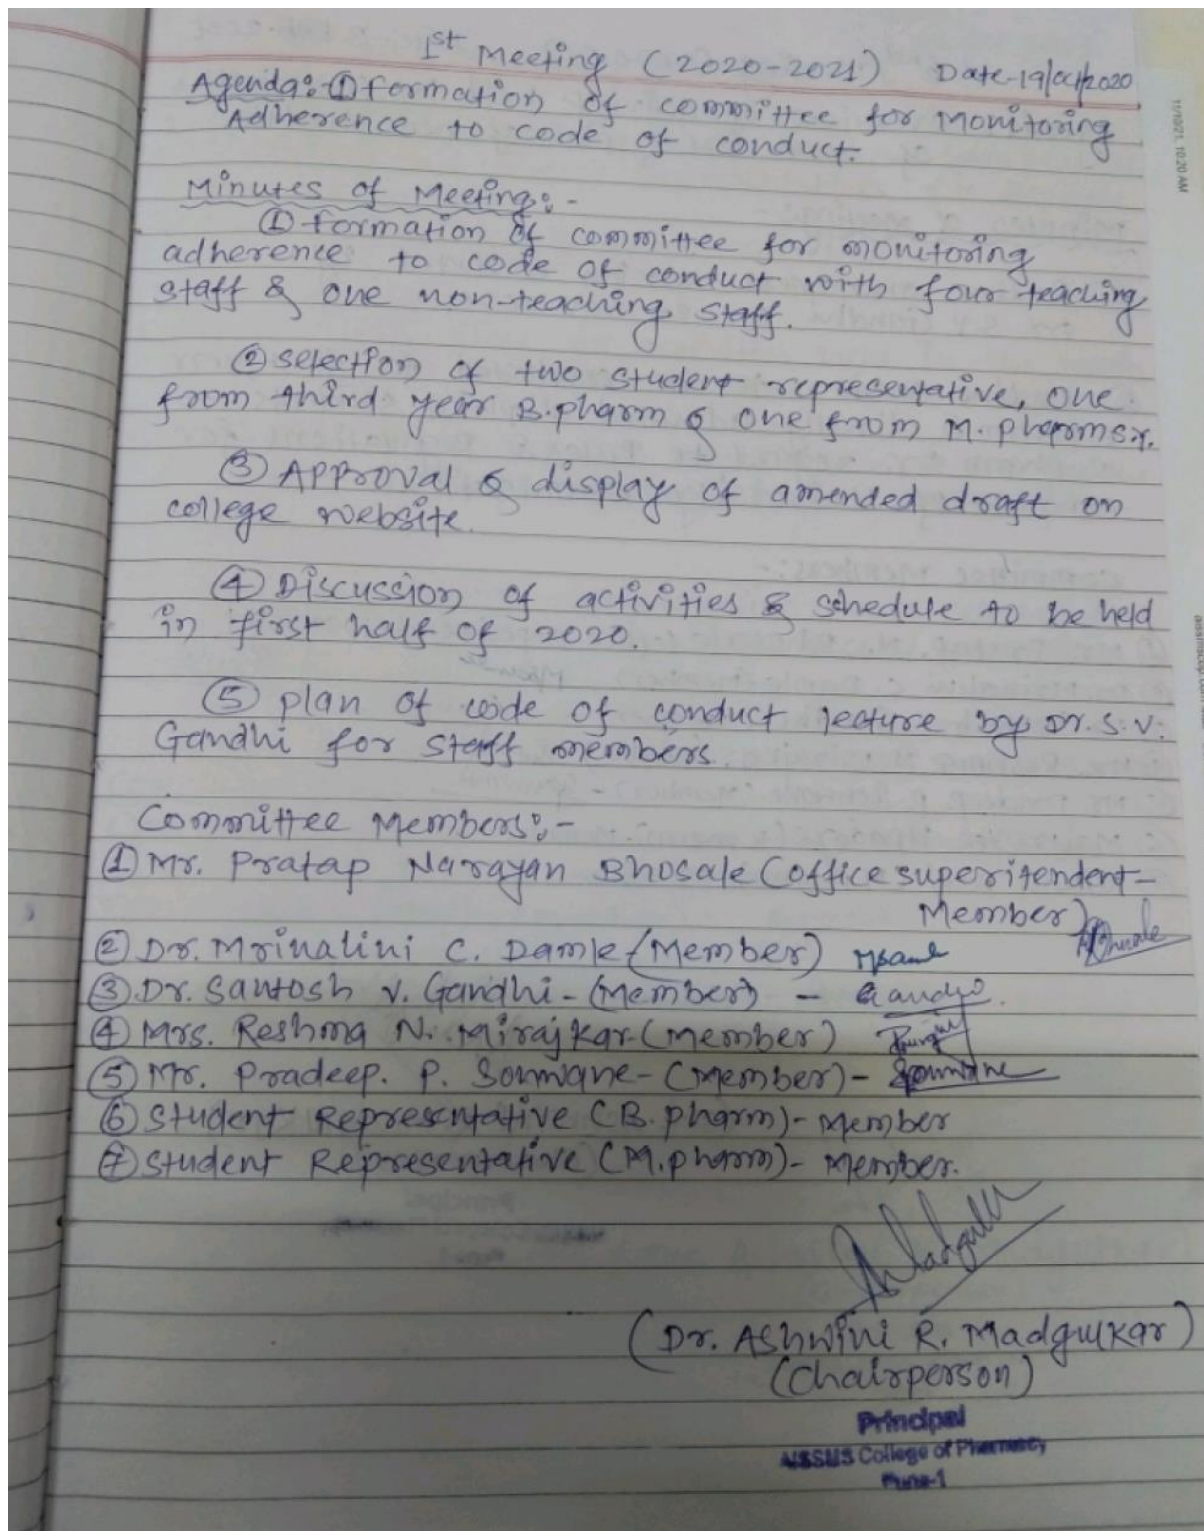 1st Meeting (2020-2021) Date-19/Oct/2020
Agenda:-① Formation of committee for Monitoring
Adherence to code of conduct.
Minutes of Meeting:-
① Formation of committee for monitoring
adherence to code of conduct with four teaching
staff & one non-teaching staff.
② Selection of two student representative, one
from third year B.pharm & one from M.pharmsy.
③ Approval & display of amended draft on
college website.
④ Discussion of activities & schedule to be held
in first half of 2020.
⑤ plan of code of conduct lecture by Dr. S. V.
Gandhi for staff members.
Committee Members:-
① Mr. Pratap Narayan Bhosale (office superitendent-
Member)
② Dr. Mrinalini C. Damle (Member)
③ Dr. Santosh V. Gandhi - (Member) - Gandhi
④ Mrs. Reshma N. Mirajkar-(Member)
⑤ Mr. Pradeep. P. Sonwane-(Member)- Sonwane
⑥ Student Representative (B.pharm)- Member
⑦ Student Representative (M.pharm)- Member.
(Dr. Ashwini R. Madgulkar)
(Chairperson)
Principal
AISSMS College of Pharmacy
Pune-1
11/10/21, 10:20 AM